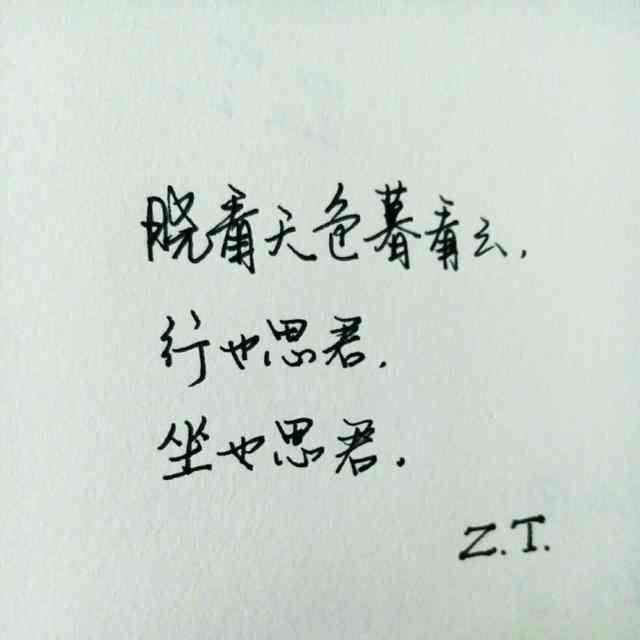 晓看天色暮看云,
行也思君,
坐也思君.
Z.T.